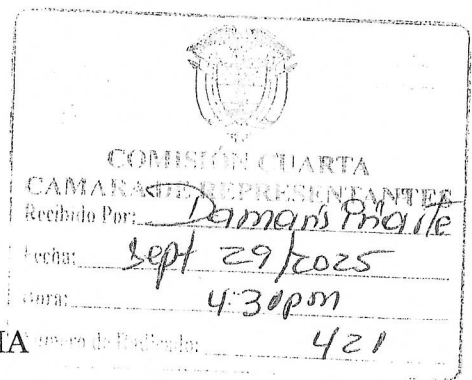 COMISIÓN CUARTA
CAMARA DE REPRESENTANTES
Recibido Por: Damaris
Fecha: Sept 29/2025
Hora: 4:30pm
IA
Numero de Radicado: 421